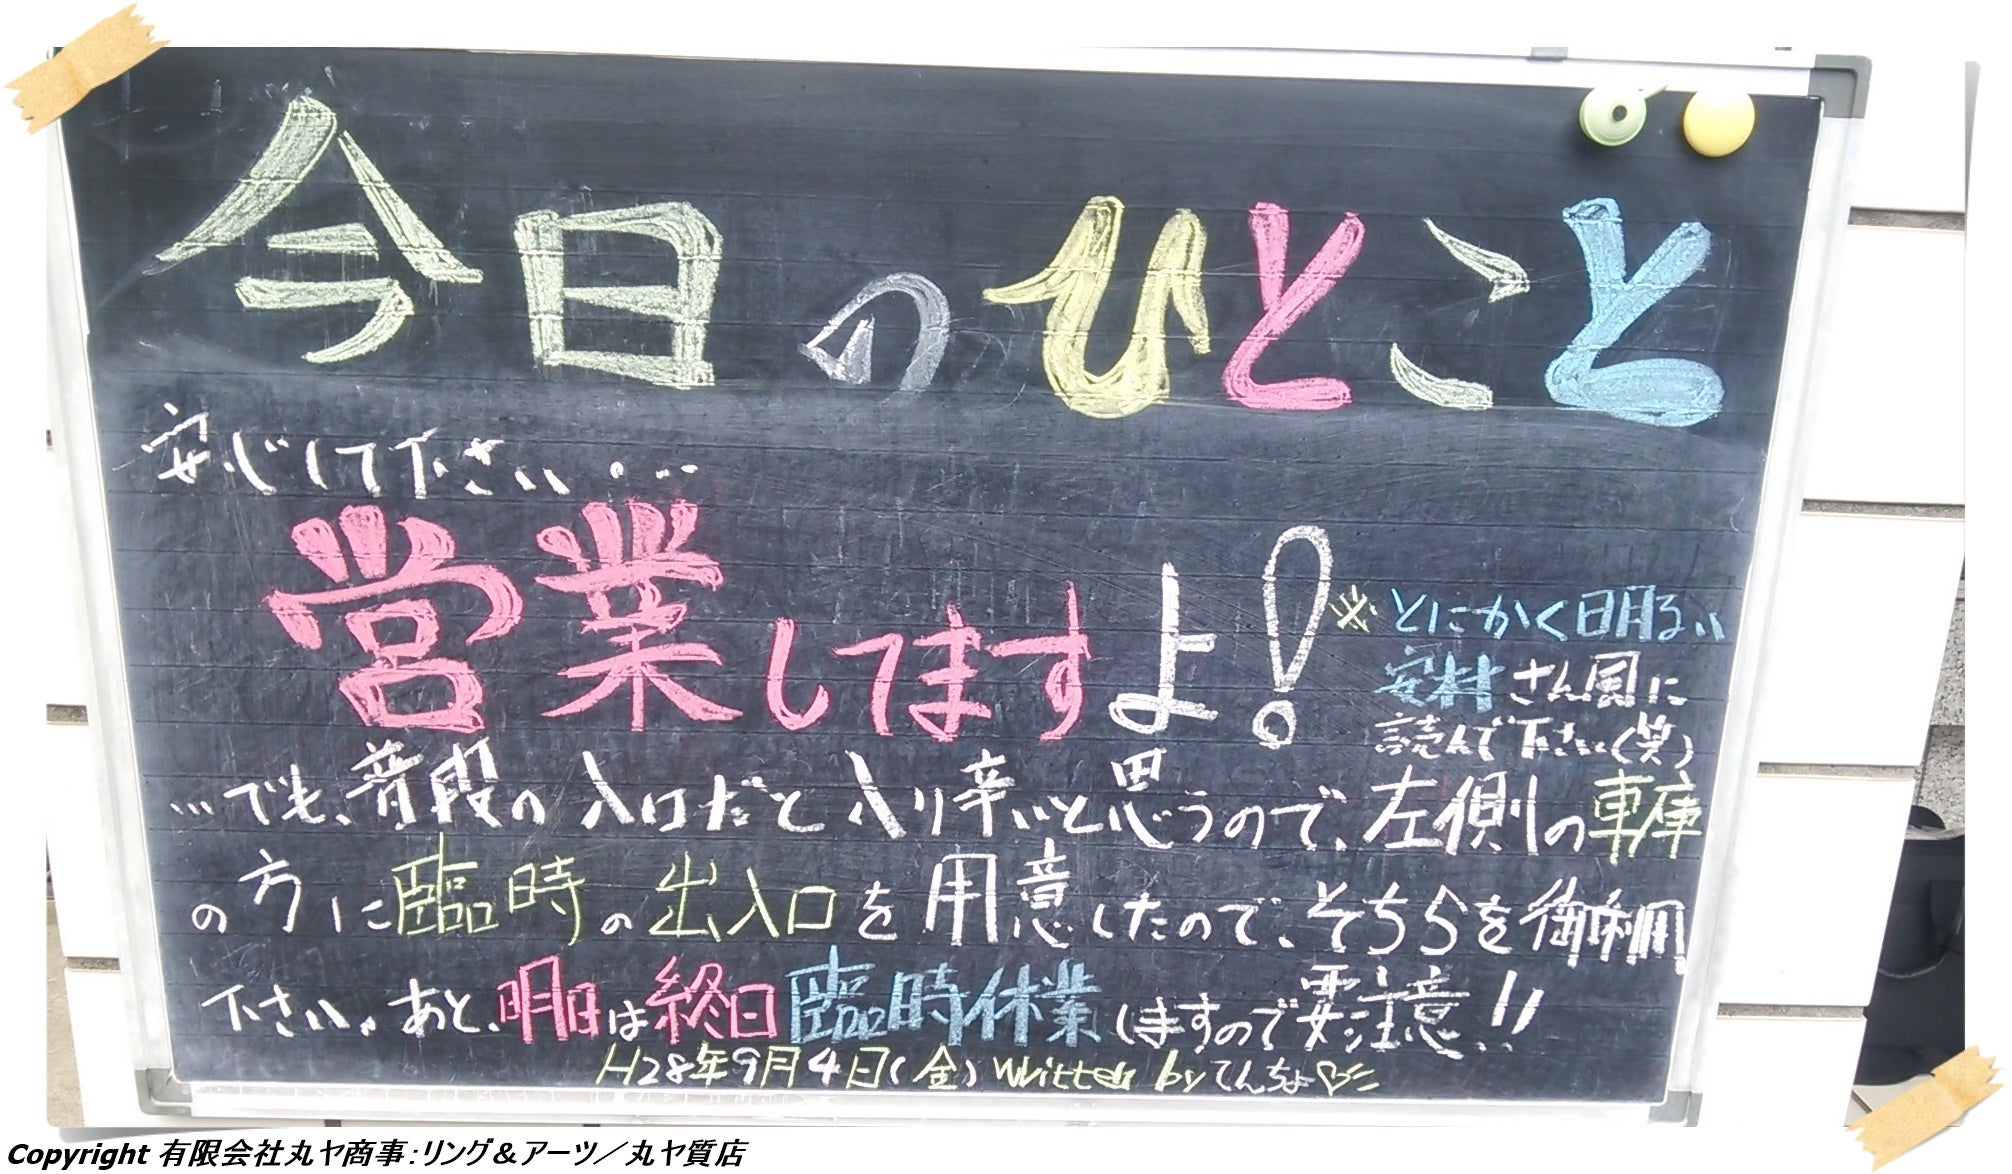 今日のひとこと
安心して下さい…
営業してますよ!
※とにかく明るい
安村さん風に
読んで下さい(笑)
…でも、普段の入口だと入り辛いと思うので、左側の車庫
の方に臨時の出入口を用意したので、そちらを御利用
下さい。あと、明日は終日臨時休業しますので要注意!!
H28年9月4日(金) Written byてんちょ♡
Copyright 有限会社丸ヤ商事:リング＆アーツ／丸ヤ質店